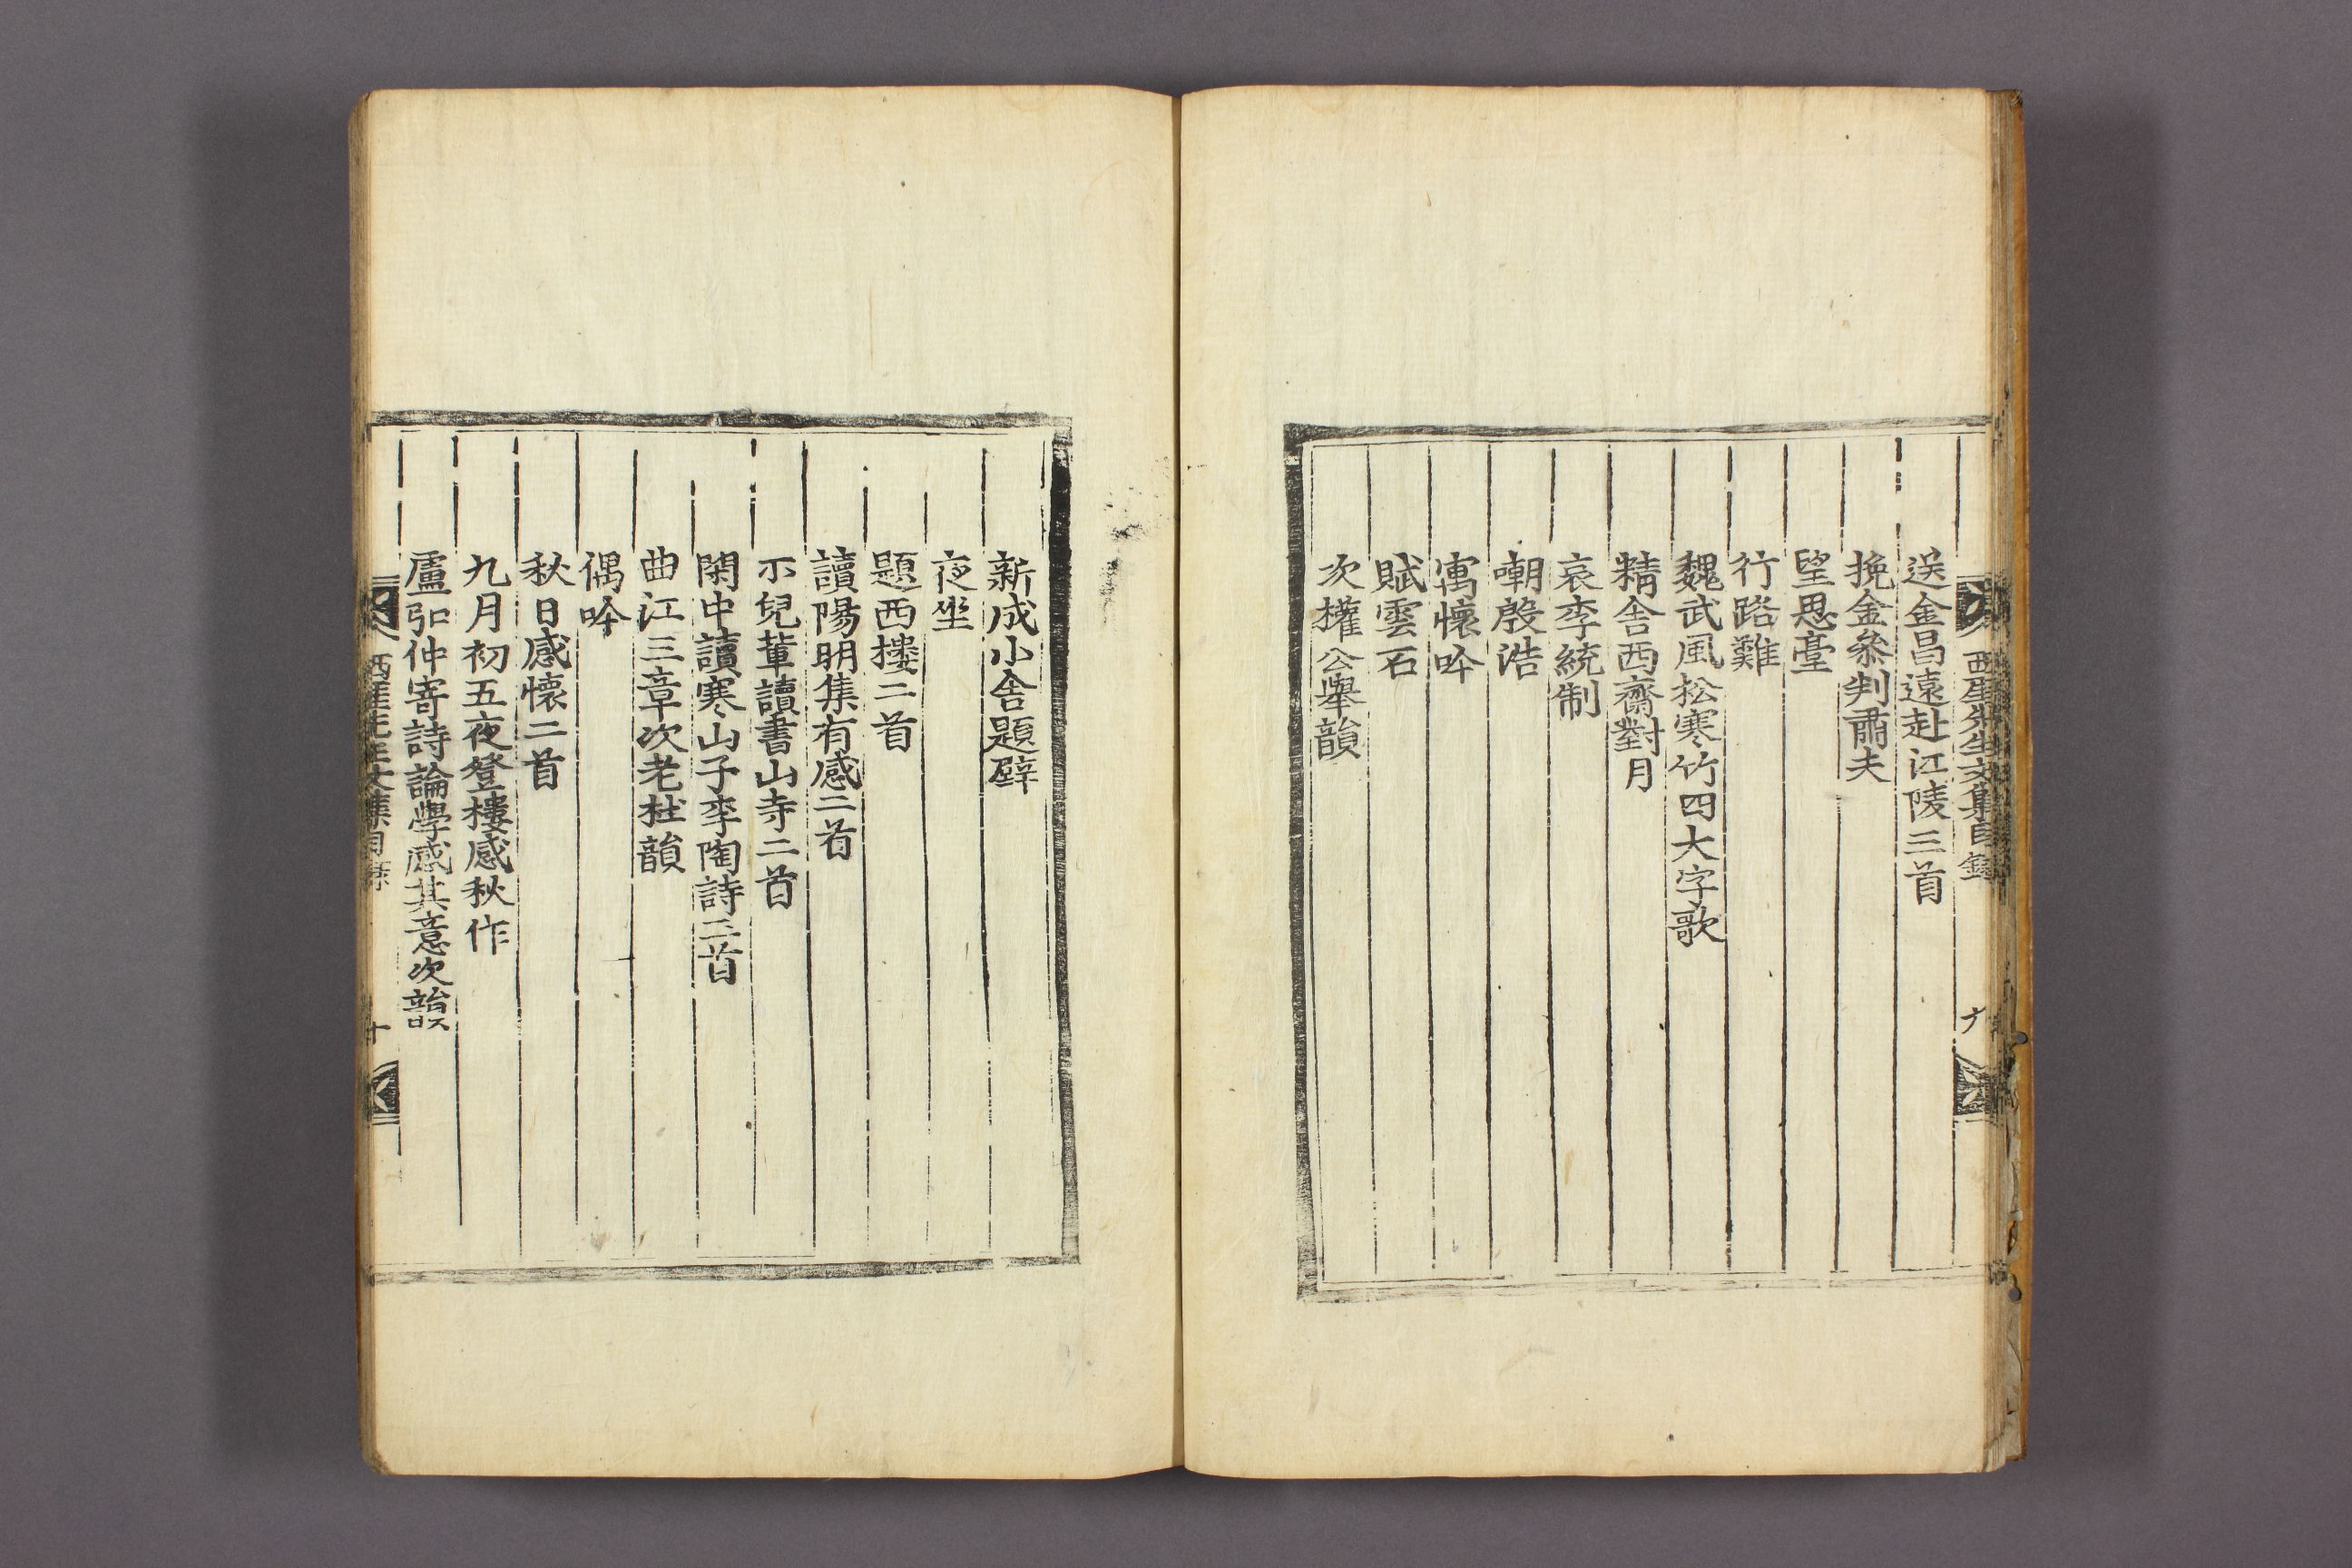 西厓先生文集目錄 九
送金昌遠赴江陵三首
挽金叅判肅夫
望思臺
行路難
魏武風松寒竹四大字歌
精舍西齋對月
哀李統制
嘲殷浩
寓懷吟
賦雲石
次權公擧韻
新成小舍題壁
夜坐
題西樓二首
讀陽明集有感二首
示兒輩讀書山寺二首
閑中讀寒山子李陶詩三首
曲江三章次老杜韻
偶吟
秋日感懷二首
九月初五夜登樓感秋作
盧弘仲寄詩論學感其意次韻
西厓先生文集目錄 十